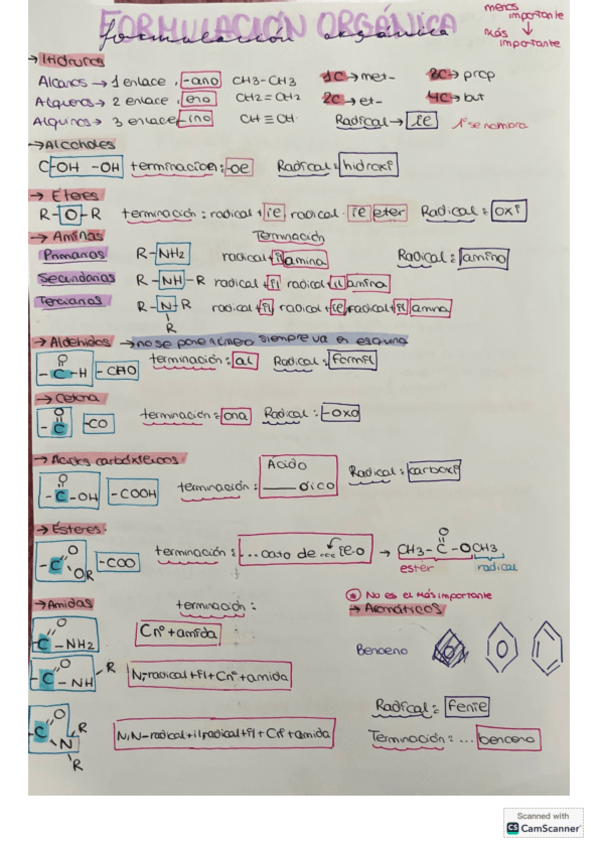 FORMULACIÓN ORGÁNICA
formulación orgánica
menos importante
↓
más importante
→ Hidruros
Alcanos → 1 enlace, -ano CH3-CH3 1C → met- 3C → prop
Alquenos → 2 enlace, eno CH2=CH2 2C → et- 4C → but
Alquinos → 3 enlace -ino CH≡CH Radical → il 1º se nombra
→ Alcoholes
C-OH -OH terminacion: -ol Radical: hidroxi
→ Eteres
R-O-R terminación: radical + il, radical · il eter Radical: oxi
→ Aminas Terminación
Primarias R-NH2 radical+il amina Radical: amino
Secundarias R-NH-R radical+il radical+il amina
Terciarias R-N-R radical+il radical+il radical+il amina
R
→ Aldehidos → no se pone número siempre va en esquina
O
-C-H -CHO terminación: al Radical: formil
→ Cetona
O
-C -CO terminación: ona Radical: -oxo
→ Ácidos carboxílicos
O
-C-OH -COOH terminación: Ácido ___ oico Radical: carboxi
→ Ésteres.
-C O OR -COO terminación: ...oato de ... il-o → CH3-C-OCH3
O
ester radical
→ Amidas terminación:
-C O -NH2 Cnº+amida
-C O -NH R N,-radical+il+Cnº+amida
-C O N R R N,N-radical+il radical+il+Cnº+amida
* No es el más importante
→ Aromáticos
Benceno
Radical: fenil
Terminación: ... benceno
Scanned with
CS CamScanner